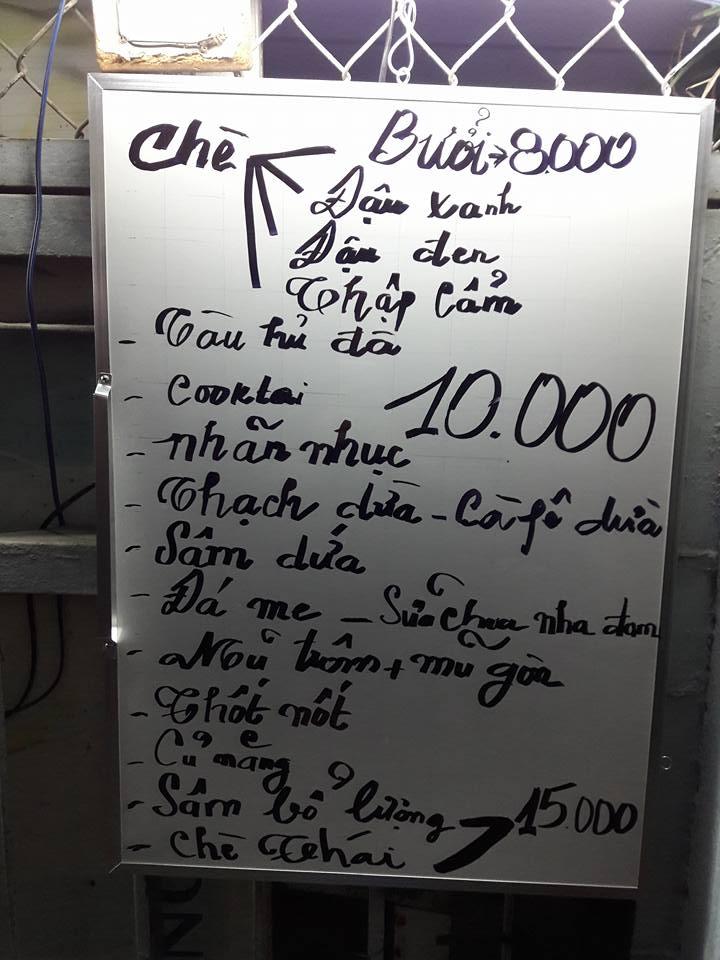 Chè Bưởi → 8.000
Đậu xanh
Đậu đen
Thập Cẩm
- Tàu hủ đá
- Cooktai 10.000
- nhãn nhục
- Thạch dừa - Cà fê dừa
- Sâm dứa
- Đá me - Sữa chua nha đam
- Mủ trôm + mũ gòn
- Thốt nốt
- Củ năng
- Sâm bổ lượng 15.000
- Chè Thái